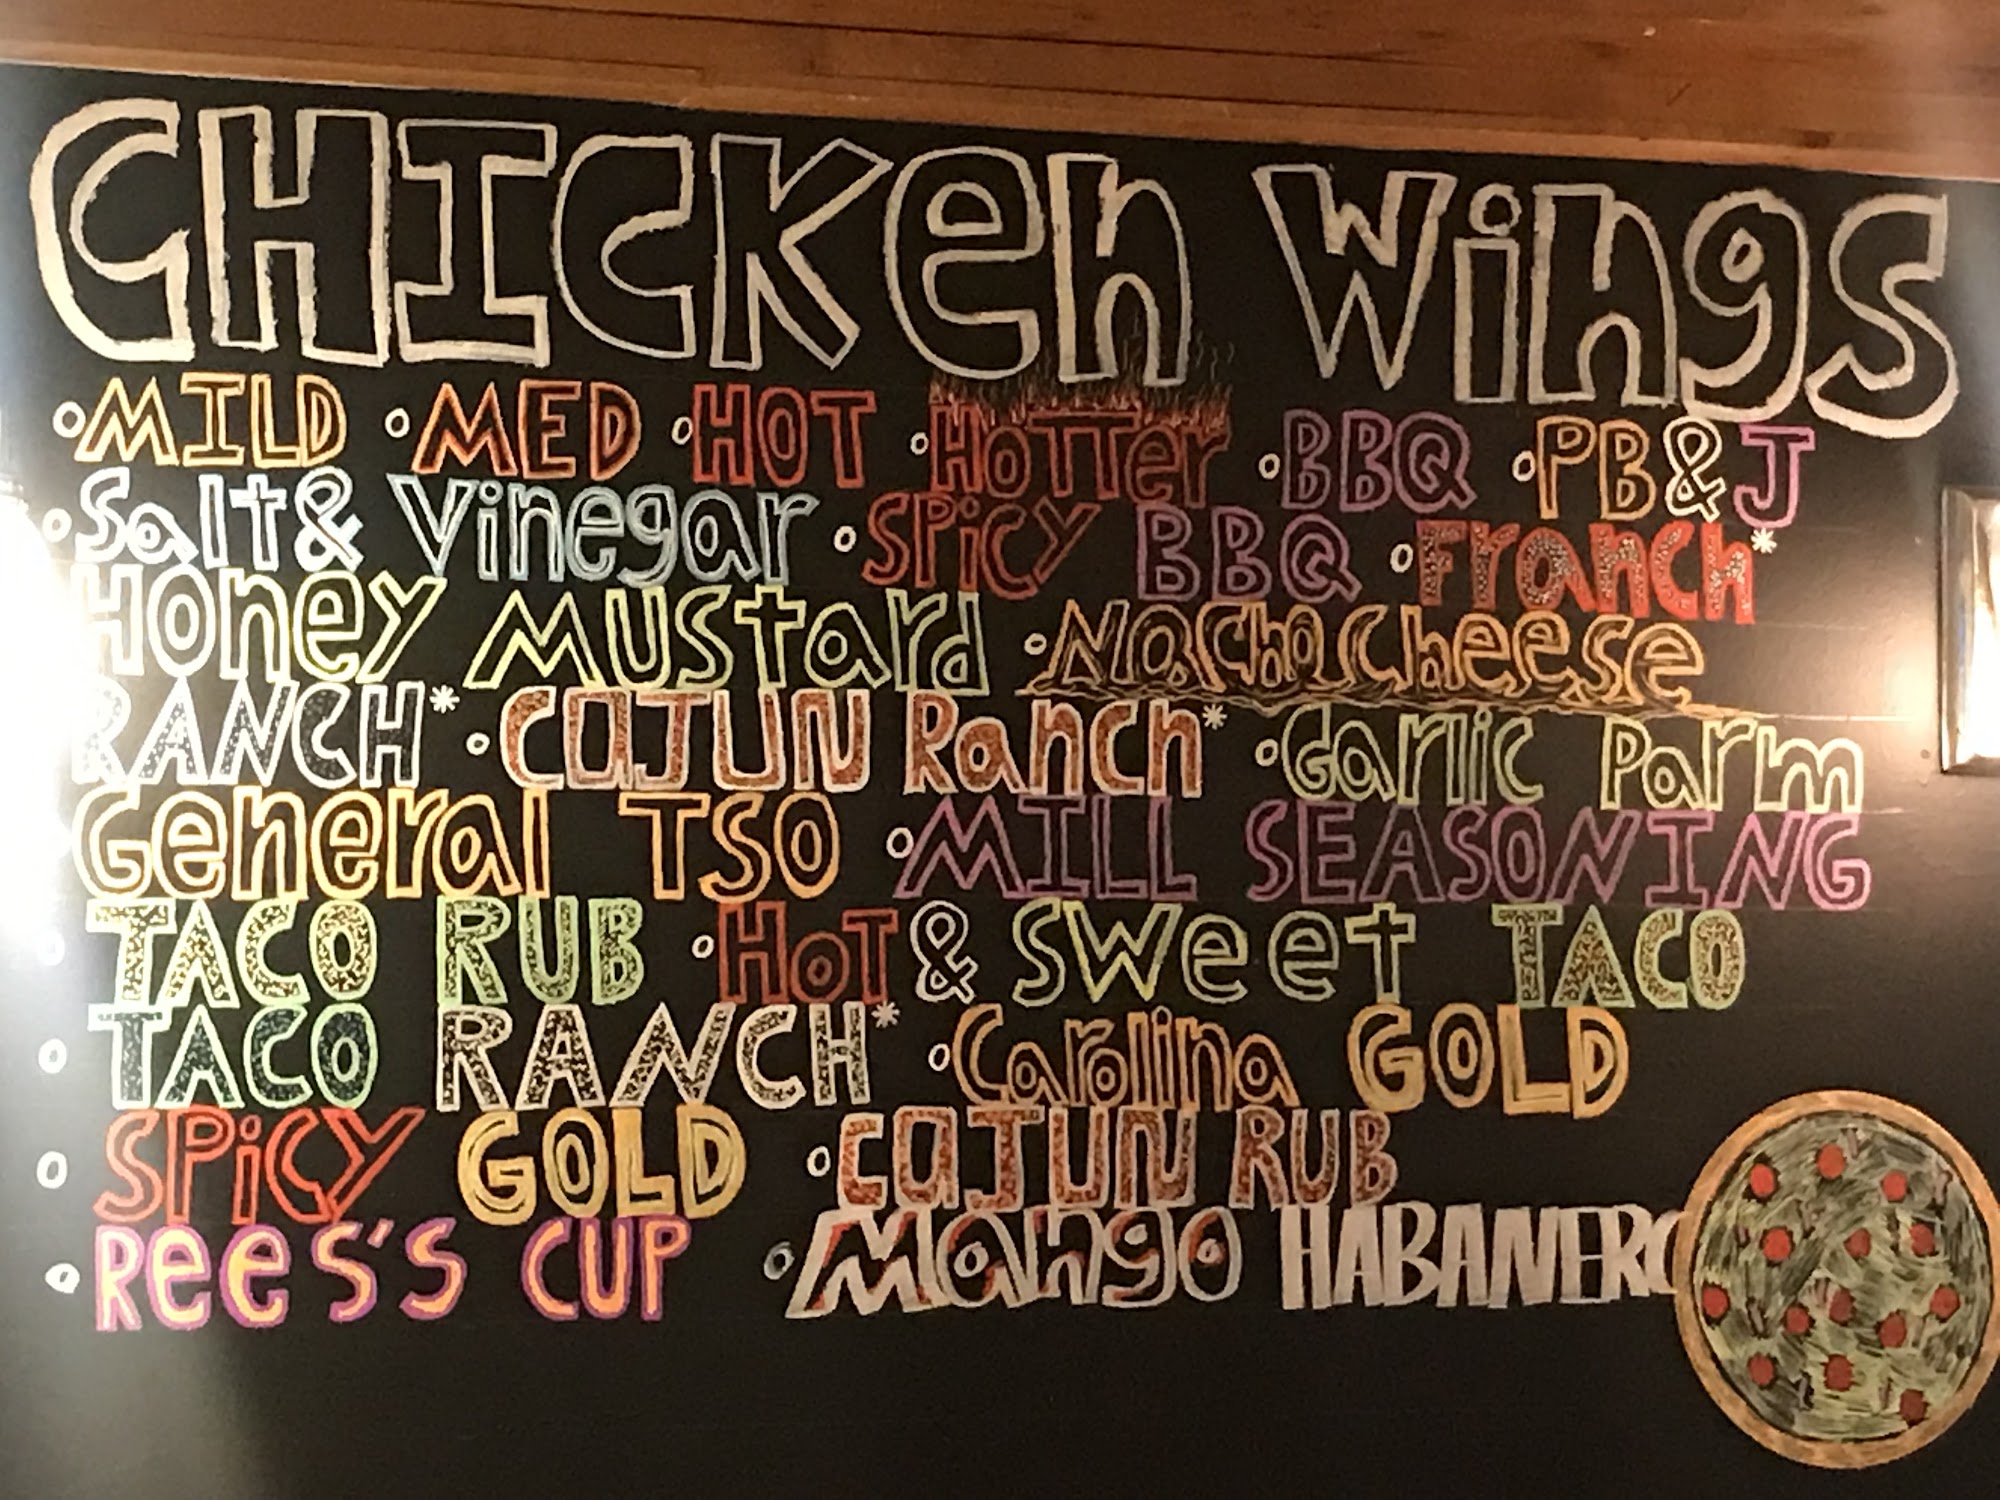 CHICKen Wings
•MILD •MED •HOT •HOTTer •BBQ •PB&J
•Salt& Vinegar •SPiCY BBQ •Franch*
Honey Mustard •Nacho Cheese
RANCH* •CAJUN Ranch* •Garlic Parm
General TSO •MILL SEASONING
TACO RUB •HoT & Sweet TACO
•TACO RANCH* •Carolina GOLD
•SPiCY GOLD •CAJUN RUB
•Rees's CUP •Mango HABANERO